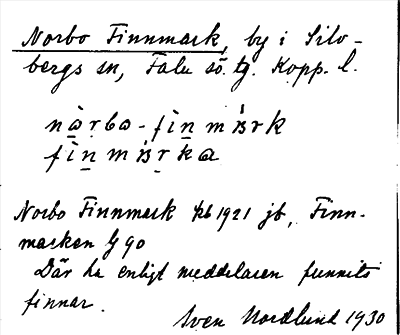 Norbo Finnmark, by i Silv-
bergs sn, Falu sö. tg. Kopp. l.
Norbo Finnmark 1921 jb, Finn-
marken G 90
Där ha enligt meddelaren funnits
finnar.
Sven Nordlund 1930